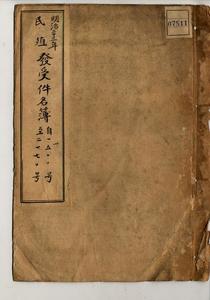 明治三十二年
民殖發受件名簿
自一五〇〇号
至二一七〇号
07511